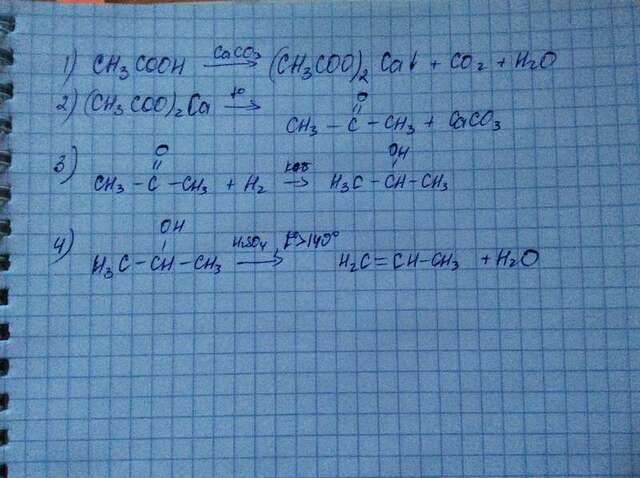 1) CH3COOH CaCO3 → (CH3COO)2 Ca↓ + CO2 + H2O
2) (CH3COO)2Ca t° →
O
CH3 – C – CH3 + CaCO3
3) O OH
CH3 – C – CH3 + H2 → H3C – CH – CH3
4) OH
H3C – CH – CH3 H2SO4, t°>140° → H2C = CH – CH3 + H2O